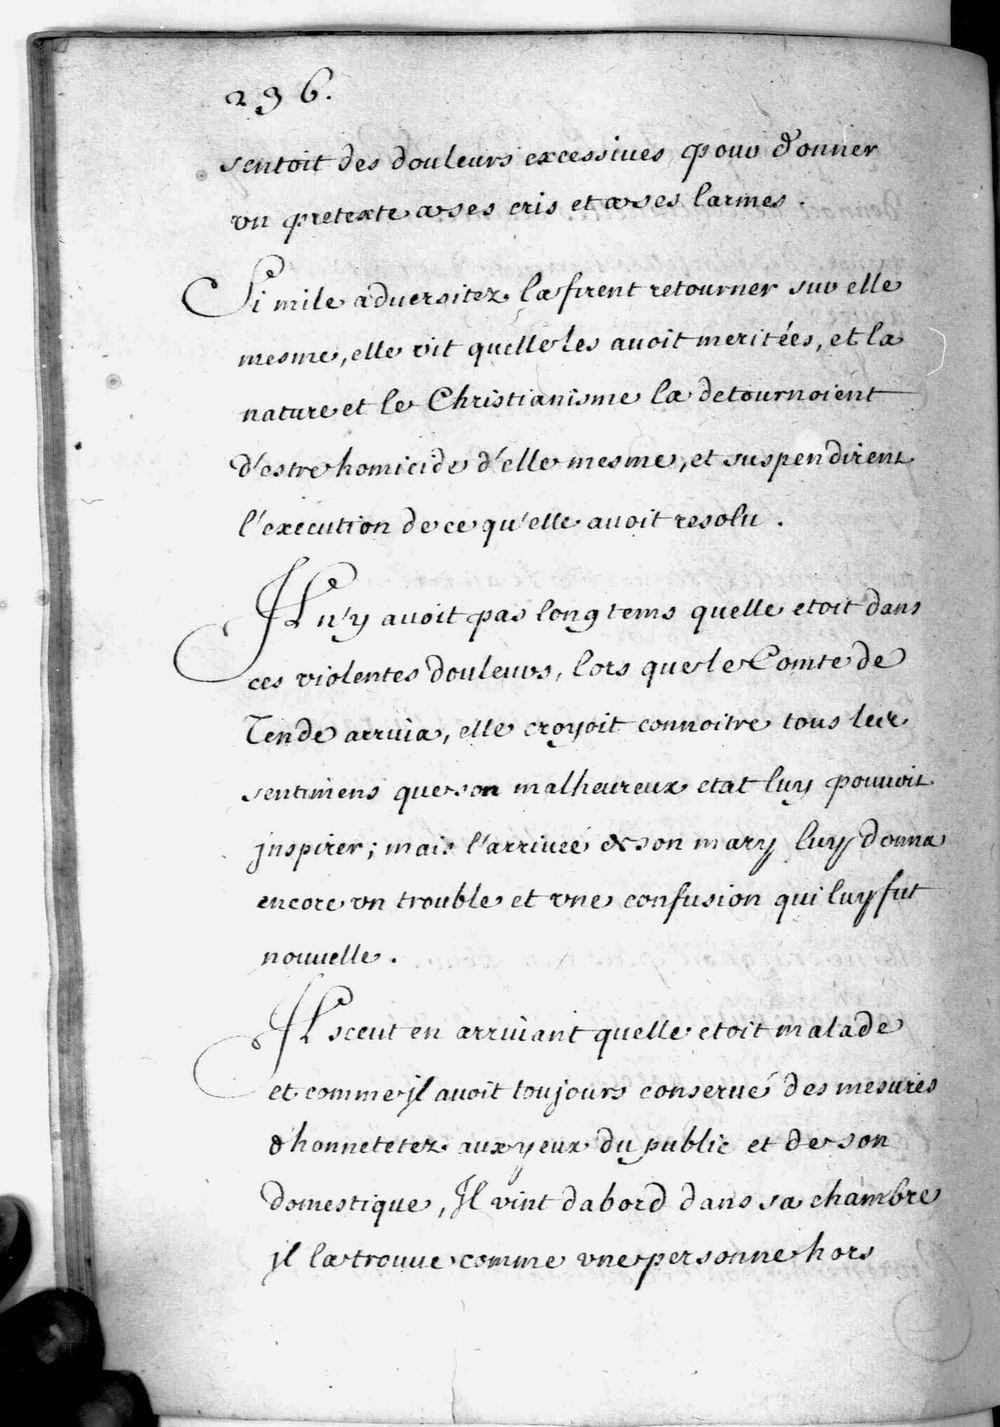 296.
sentoit des douleurs excessiues pour donner
vn pretexte a ses cris et a ses larmes.
Si mile aduersitez la firent retourner sur elle
mesme, elle vit quelle les auoit meritées, et la
nature et le Christianisme la detournoient
d'estre homicide d'elle mesme, et suspendirent
l'execution de ce qu'elle auoit resolu.
Il n'y auoit pas longtems quelle etoit dans
ces violentes douleurs, lors que le Comte de
Tende arriua, elle croyoit connoitre tous les
sentimens que son malheureux etat luy pouuoit
jnspirer; mais l'arriuée de son mary luy donna
encore vn trouble et vne confusion qui luy fut
nouuelle.
Il sceut en arriuant quelle etoit malade
et comme jl auoit toujours conserué des mesures
d'honnetetez aux yeux du public et de son
domestique, Il vint dabord dans sa chambre
jl la trouue comme vne personne hors